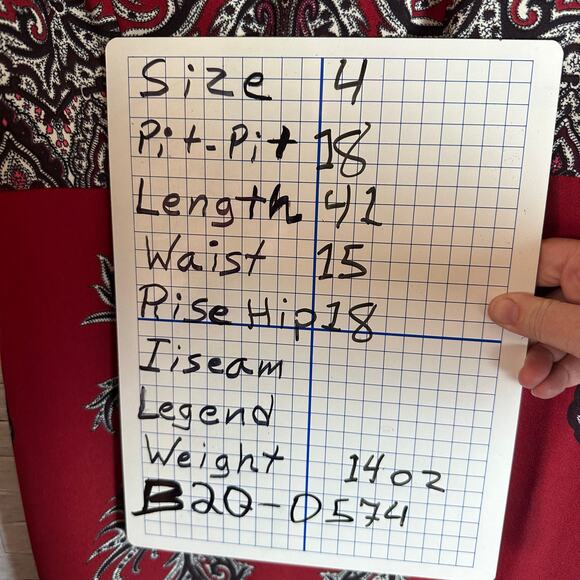 Size 4
Pit-Pit 18
Length 41
Waist 15
Rise Hip 18
Iiseam
Legend
Weight 14oz
B20-0574